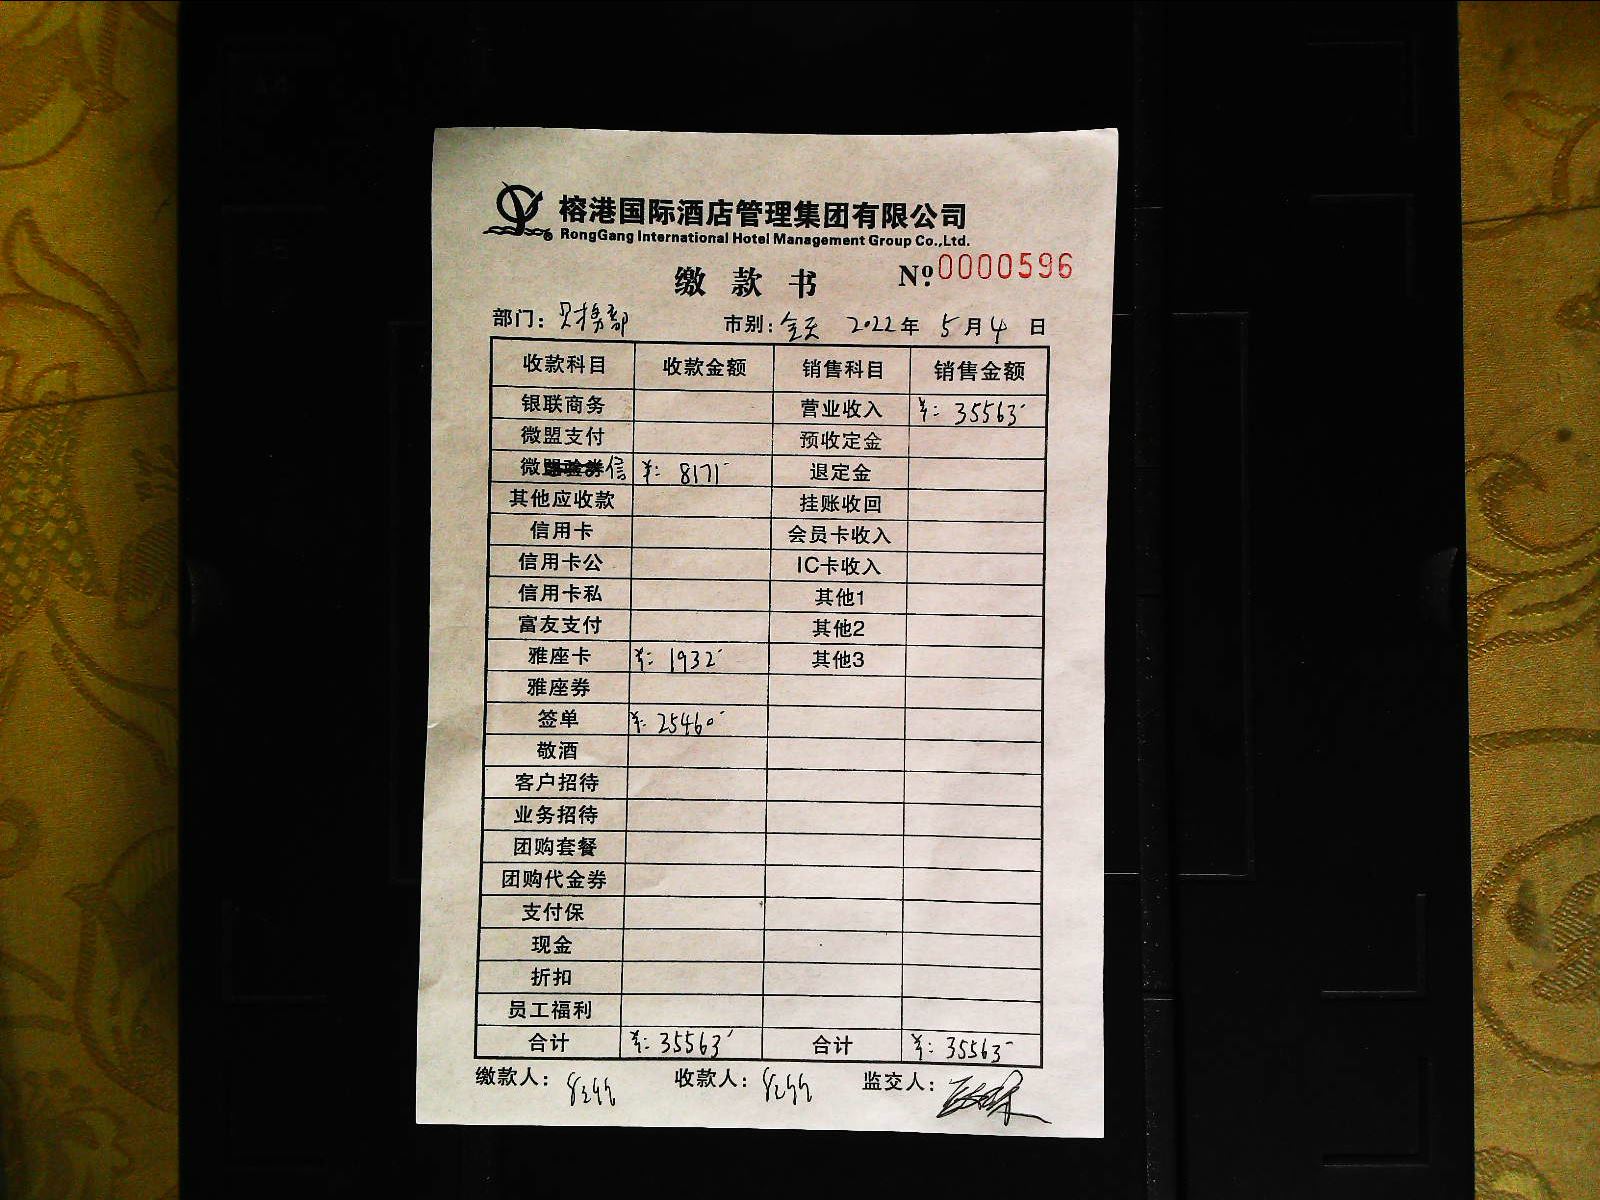 榕港国际酒店管理集团有限公司
RongGang International Hotel Management Group Co.,Ltd.
缴款书 №:0000596
部门：财务部 市别：全天 2022年 5月4日
收款科目 收款金额 销售科目 销售金额
银联商务 营业收入 ¥：35563-
微盟支付 预收定金
微盟验券信 ¥：8171- 退定金
其他应收款 挂账收回
信用卡 会员卡收入
信用卡公 IC卡收入
信用卡私 其他1
富友支付 其他2
雅座卡 ¥：1932- 其他3
雅座券
签单 ¥：25460-
敬酒
客户招待
业务招待
团购套餐
团购代金券
支付保
现金
折扣
员工福利
合计 ¥：35563- 合计 ¥：35563-
缴款人： 收款人： 监交人：